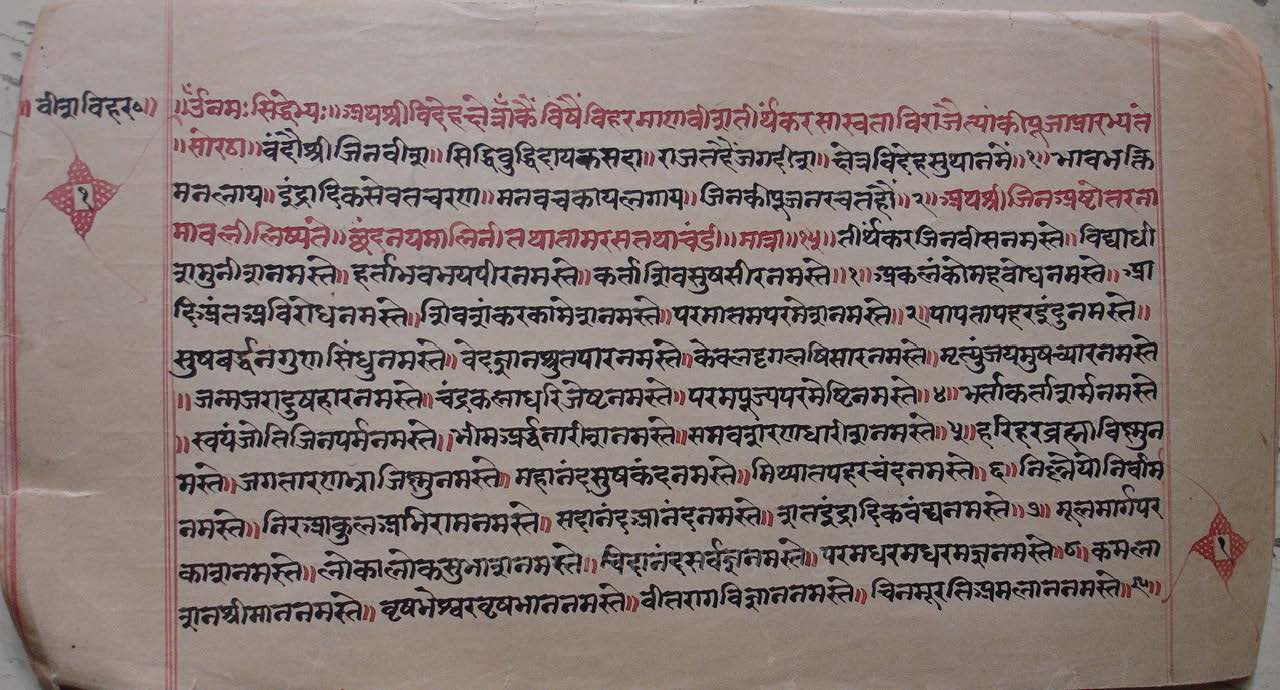 ॥ वीशविहर॰॥
॥ॐनमः सिद्धेभ्यः॥ अथश्रीविदेहक्षेत्राँकैंविषैंविहरमाणवीशतीर्थंकरसास्वताविराजैत्यांकीपूजाप्रारभ्यते
॥सोरठा॥ वंदौश्रीजिनवीश॥ सिद्धिवुद्धिदायकसदा॥ राजतहैंजगदीश॥ क्षेत्रविदेहसुथानमें॥१॥ भावभक्ति
मनल्याय॥ इंद्रादिकसेवतचरण॥ मनवचकायलगाय॥ जिनकीपूजनरचतहौं॥२॥ अथश्रीजिनअष्टोतरना
मावलीलिष्यते॥ छंदनयमालिनीतथातामरसतथाचंडी॥ मात्रा॥१५॥ तीर्थंकरजिनवीसनमस्ते॥ विद्याधी
शमुनीशनमस्ते॥ हर्ताभवभयपीरनमस्ते॥ कर्ताशिवसुषसीरनमस्ते॥१॥ अकलंकोमहवोधनमस्ते॥ आ
दिअंतअविरोधनमस्ते॥ शिवशंकरकामेशनमस्ते॥ परमातमपरमेशनमस्ते॥२॥ पापतापहरइंदुनमस्ते॥
सुषवर्द्धनगुणसिंधुनमस्ते॥ वेदज्ञानश्रुतपारनमस्ते॥ केवलदृगलषिसारनमस्ते॥ मृत्युंजयमुषच्यारनमस्ते
॥ जन्मजरादुषहारनमस्ते॥ चंद्रकलाधरिजेष्टनमस्ते॥ परमपूज्यपरमेष्टिनमस्ते॥४॥ भर्ताकर्ताशर्मनमस्ते
॥ स्वयंजोतिजिनपर्मनमस्ते॥ भीमअर्द्धनारीशनमस्ते॥ समवशरणधारीशनमस्ते॥५॥ हरिहरब्रह्माविष्णुन
मस्ते॥ जगतारणभ्राजिष्णुनमस्ते॥ महानंदसुषकंदनमस्ते॥ मिथ्यातपहरचंदनमस्ते॥६॥
नमस्ते॥ निरआकुलअभिरामनमस्ते॥ सदानंदआनंदनमस्ते॥ शतइंद्रादिकवंद्यनमस्ते॥७॥ मूलमार्गपर
काशनमस्ते॥ लोकालोकसुभाशनमस्ते॥ चिदानंदसर्वज्ञनमस्ते॥ परमधरमधरमज्ञनमस्ते॥८॥ कमला
शनश्रीमाननमस्ते॥ वृषभेश्वरवृषभाननमस्ते॥ वीतरागविज्ञाननमस्ते॥ चिनमूरतिअमलाननमस्ते॥९॥
१
१